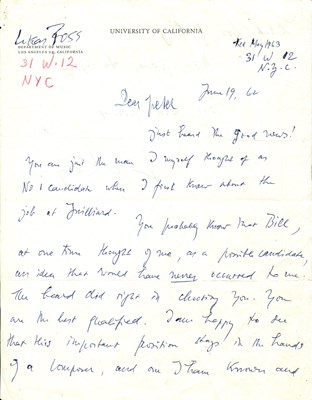 Lukas Foss
UNIVERSITY OF CALIFORNIA
DEPARTMENT OF MUSIC
LOS ANGELES 24, CALIFORNIA
31 W. 12
NYC
May 1963
31 W 12
N.Y.C.
June 19, 62
Dear Peter
Just heard the good news!
You are just the man I myself thought of as
No 1 candidate when I first knew about the
job at Juilliard.
You probably know that Bill,
at one time thought of me, as a possible candidate,
an idea that would have never occurred to me.
The board did right in choosing You. You
are the best qualified. I am happy to see
that this important position stays in the hands
of a composer, and one I have known and